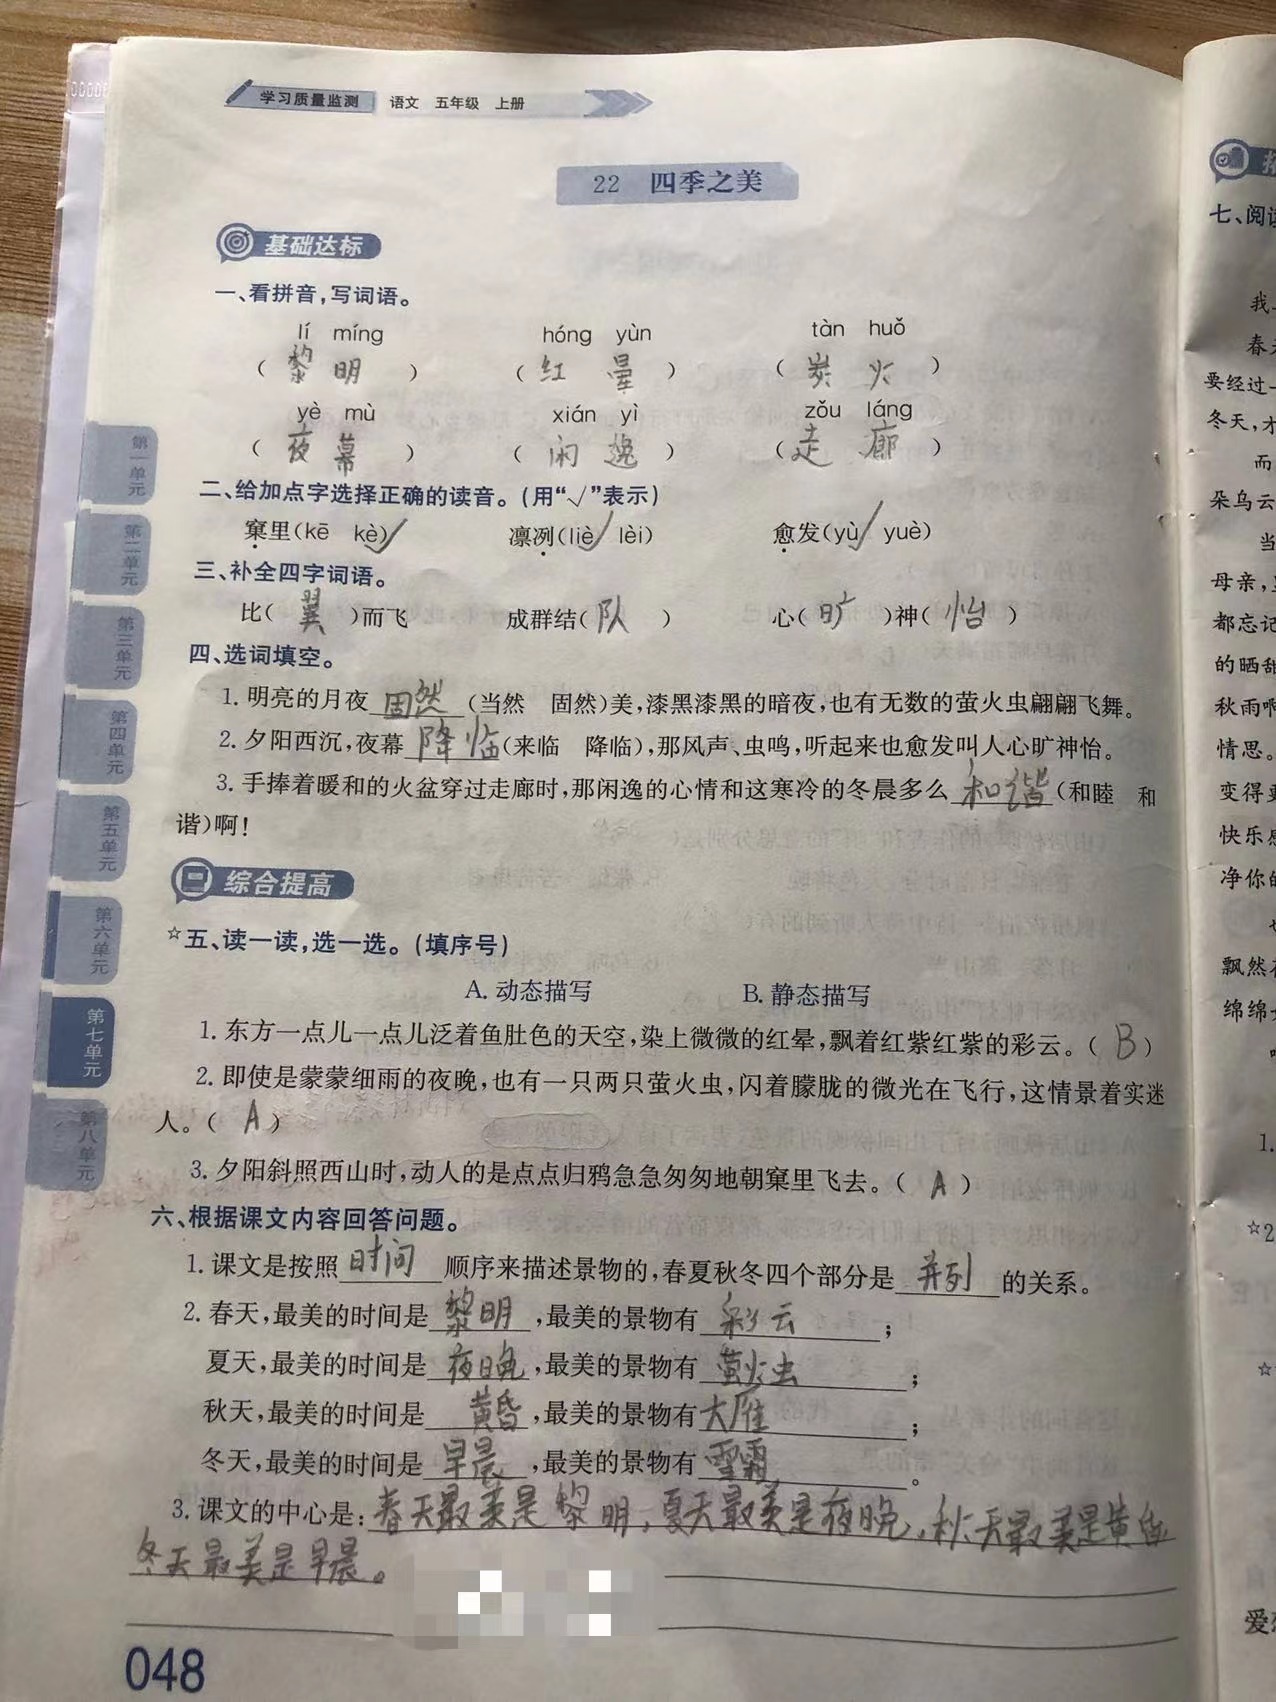 学习质量监测 语文 五年级 上册
22 四季之美
基础达标
一、看拼音,写词语。
lí míng hóng yùn tàn huǒ
(黎明) (红晕) (炭火)
yè mù xián yì zǒu láng
(夜幕) (闲逸) (走廊)
二、给加点字选择正确的读音。(用“√”表示)
窠里(kē kè√) 凛冽(liè√ lèi) 愈发(yù√ yuè)
三、补全四字词语。
比(翼)而飞 成群结(队) 心(旷)神(怡)
四、选词填空。
1. 明亮的月夜固然(当然 固然)美,漆黑漆黑的暗夜,也有无数的萤火虫翩翩飞舞。
2. 夕阳西沉,夜幕降临(来临 降临),那风声、虫鸣,听起来也愈发叫人心旷神怡。
3. 手捧着暖和的火盆穿过走廊时,那闲逸的心情和这寒冷的冬晨多么和谐(和睦 和
谐)啊!
综合提高
☆五、读一读,选一选。(填序号)
A. 动态描写 B. 静态描写
1. 东方一点儿一点儿泛着鱼肚色的天空,染上微微的红晕,飘着红紫红紫的彩云。(B)
2. 即使是蒙蒙细雨的夜晚,也有一只两只萤火虫,闪着朦胧的微光在飞行,这情景着实迷
人。(A)
3. 夕阳斜照西山时,动人的是点点归鸦急急匆匆地朝窠里飞去。(A)
六、根据课文内容回答问题。
1. 课文是按照时间顺序来描述景物的,春夏秋冬四个部分是并列的关系。
2. 春天,最美的时间是黎明,最美的景物有彩云;
夏天,最美的时间是夜晚,最美的景物有萤火虫;
秋天,最美的时间是黄昏,最美的景物有大雁;
冬天,最美的时间是早晨,最美的景物有雪霜。
3. 课文的中心是:春天最美是黎明,夏天最美是夜晚,秋天最美是黄昏
冬天最美是早晨。
048
第一单元
第二单元
第三单元
第四单元
第五单元
第六单元
第七单元
第八单元
七、阅读
我
春天
要经过一
冬天,才
而
朵乌云
当
母亲,
都忘记
的晒甜
秋雨啊
情思。
变得更
快乐感
净你的
飘然在
绵绵
1.
☆2
☆